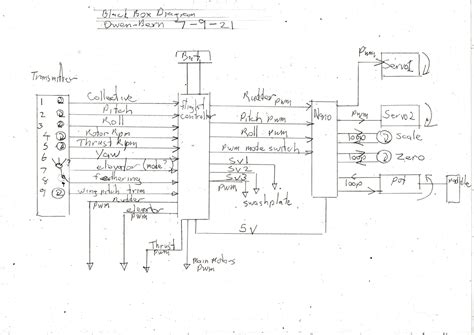 Black Box Diagram
Owen-Bern 7-9-21
Batt
Transmitter
1 Collective
2 Pitch
3 Roll
4 Rotor Rpm
5 Thrust Rpm
6 Yaw
7 elevator (mode?)
8 feathering
9 wing pitch trim
Flight
controller
Rudder
pwm
Pitch pwm
Roll pwm
Pwm mode switch
Sv1
Sv2
Sv3
pwm
swashplate
Nano
Pwm
Servo1
Pwm
Servo2
loop
Scale
loop
Zero
loop
Pot
Rudder
pwm
elevator
pwm
Thrust
pwm
Main Motors
pwm
5V